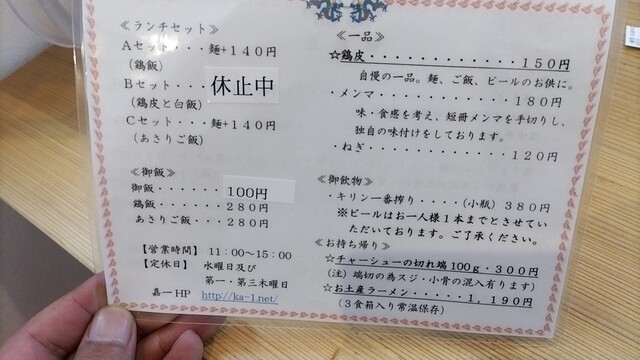 ≪ランチセット≫
Aセット・・・麺+140円
(鶏飯)
Bセット・・・休止中
(鶏皮と白飯)
Cセット・・・麺+140円
(あさりご飯)
≪御飯≫
御飯・・・・・・100円
鶏飯・・・・・・280円
あさりご飯・・・280円
【営業時間】 11:00~15:00
【定休日】 水曜日及び
第一・第三木曜日
嘉一HP http://ka-1.net/
≪一品≫
☆鶏皮・・・・・・・・・・・・150円
自慢の一品。麺、ご飯、ビールのお供に。
・メンマ・・・・・・・・・・・180円
味・食感を考え、短冊メンマを手切りし、
独自の味付けをしております。
・ねぎ・・・・・・・・・・・・120円
≪御飲物≫
・キリン一番搾り・・・・(小瓶)380円
※ビールはお一人様1本までとさせてい
ただいております。ご了承ください。
≪お持ち帰り≫
☆チャーシューの切れ端100g・300円
(注)端切の為スジ・小骨の混入有ります)
☆お土産ラーメン・・・・・1,190円
(3食箱入り常温保存)